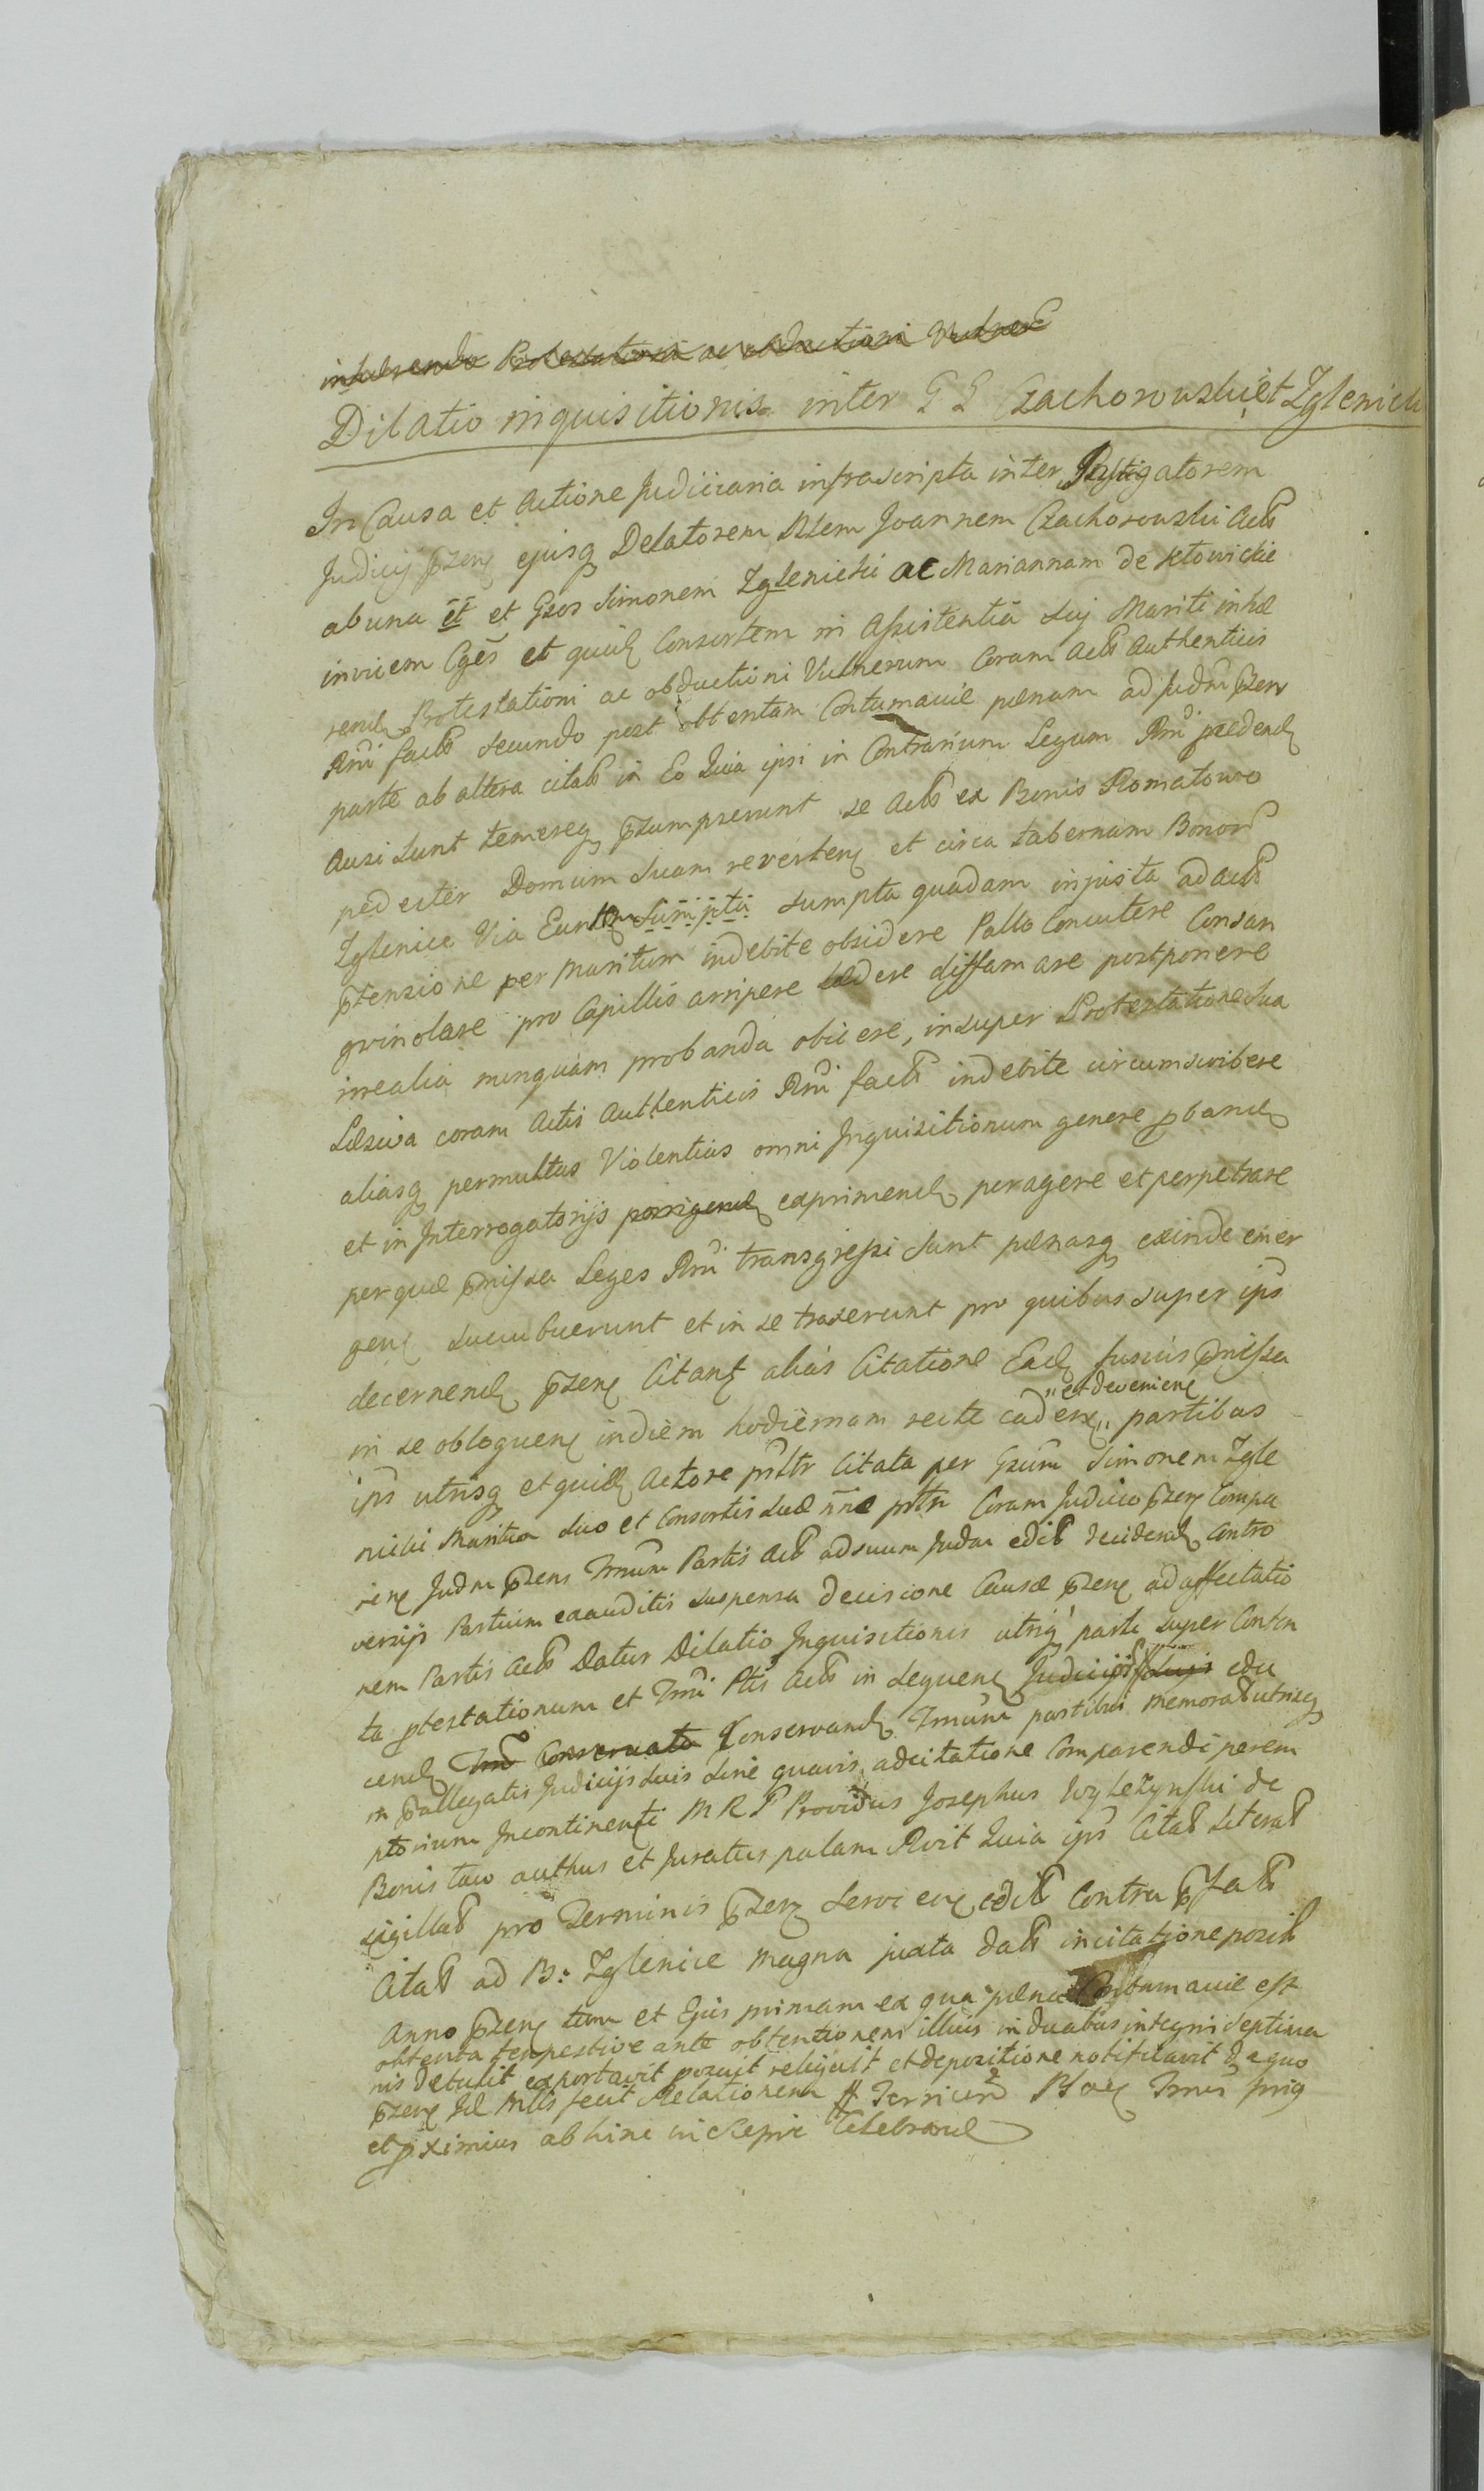 inhærendo Protestationi ac obductioni Vulner
Dilatio inquisitionis inter G G Czachorowski et Zglenick
In Causa et Actione Judiciaria infrascripta inter Instigatorem
Judicij pzen ejusq Delatorem Nlem Joannem Czachorowski Act
ab una et et Gsos Simonem Zglenicki ac Mariannam de
invicem Cges et quid Consortem in Assistentia Suj Mariti inhæ
rend Protestationi ac obductioni Vulnerum Coram Actis Authenticis
Rni fact secundo post obtentam Contumaciæ pænam ad Judm pzen
parte ab altera citat in Eo Quia ipsi in Contrarium Legum Rni prædend
Ausi sunt temereq pzumpserunt se Act ex Bonis Romatowo
pedester Domum Suam reverten et circa tabernam Bonor
Zglenice Via Eunten Sumpta sumpta quadam injusta ad act
ptensione per Maritum indebite obsidere Pallo Concutere Consan
gvinolare pro Capillis arripere lædere diffamare postponere
irrealia nunquam probanda obicere, insuper Protestatione Sua
Læsiva coram Actis Authenticis Rni fact indebite circumscribere
aliasq permultas Violentias omni Inquisitionum genere pband
et in Interrogatorijs porrigend exprimend peragere et perpetrare
per quæ pmissa Leges Rni transgressi sunt pænasq exinde emer
gen succubuerunt et in se traxerunt pro quibus super ips
decernend pzen Citant alias Citatione Ead fusius pmissa
in se obloquen in diem hodiernam recte caden " et devenien " partibus
ips utrisq et quid Actore psltr Citata per Gsum Simonem Zgle
nicki Maritum Suo et Consortis Suæ nne psltr Coram Judicio pzen Compa
ren Judm pzens Tmum Partis Act ad suum Judm edit decidend Contro
versijs Partium exauditis suspensa decisione Causæ pzen ad affectatio
nem Partis Act Datur Dilatio Inquisitionis utrig parti super Conten
ta ptestationum et Tmi Ptis Act in sequen Judicijs Suijs edu
cend Tmo Conservato Conservand Tmum partibus memorat utrisq
in pallegatis Judicijs Suis Sine quavis adcitatione Comparendi perem
ptorium Incontinenti MRP Providus Josephus Wylezynski de
Bonis tuo authus et Juratus palam Rvit Quia ips Citat Literat
sigillat pro Terminis pzen Servien edit Contra pfat
Citat ad B: Zglenice Magna juxta dat in citatione posit
Anno pzen tum et Ejus primam ex qua pæna Contumaciæ est
obtenta tempestive ante obtentionem illius in duabus integris septima
nis detulit exportavit posuit reliquit et depositione notificavit de quo
pzen Jd Mlls fecit Relationem # Terminus Tmus
et pximius ab hinc in Celebrand